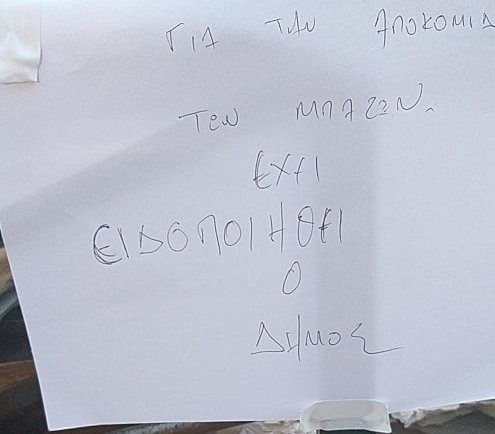 ΓΙΑ ΤΗΝ ΑΠΟΚΟΜΙΔ
ΤΩΝ ΜΠΑΖΩΝ.
ΕΧΕΙ
ΕΙΔΟΠΟΙΗΘΕΙ
Ο
ΔΗΜΟΣ